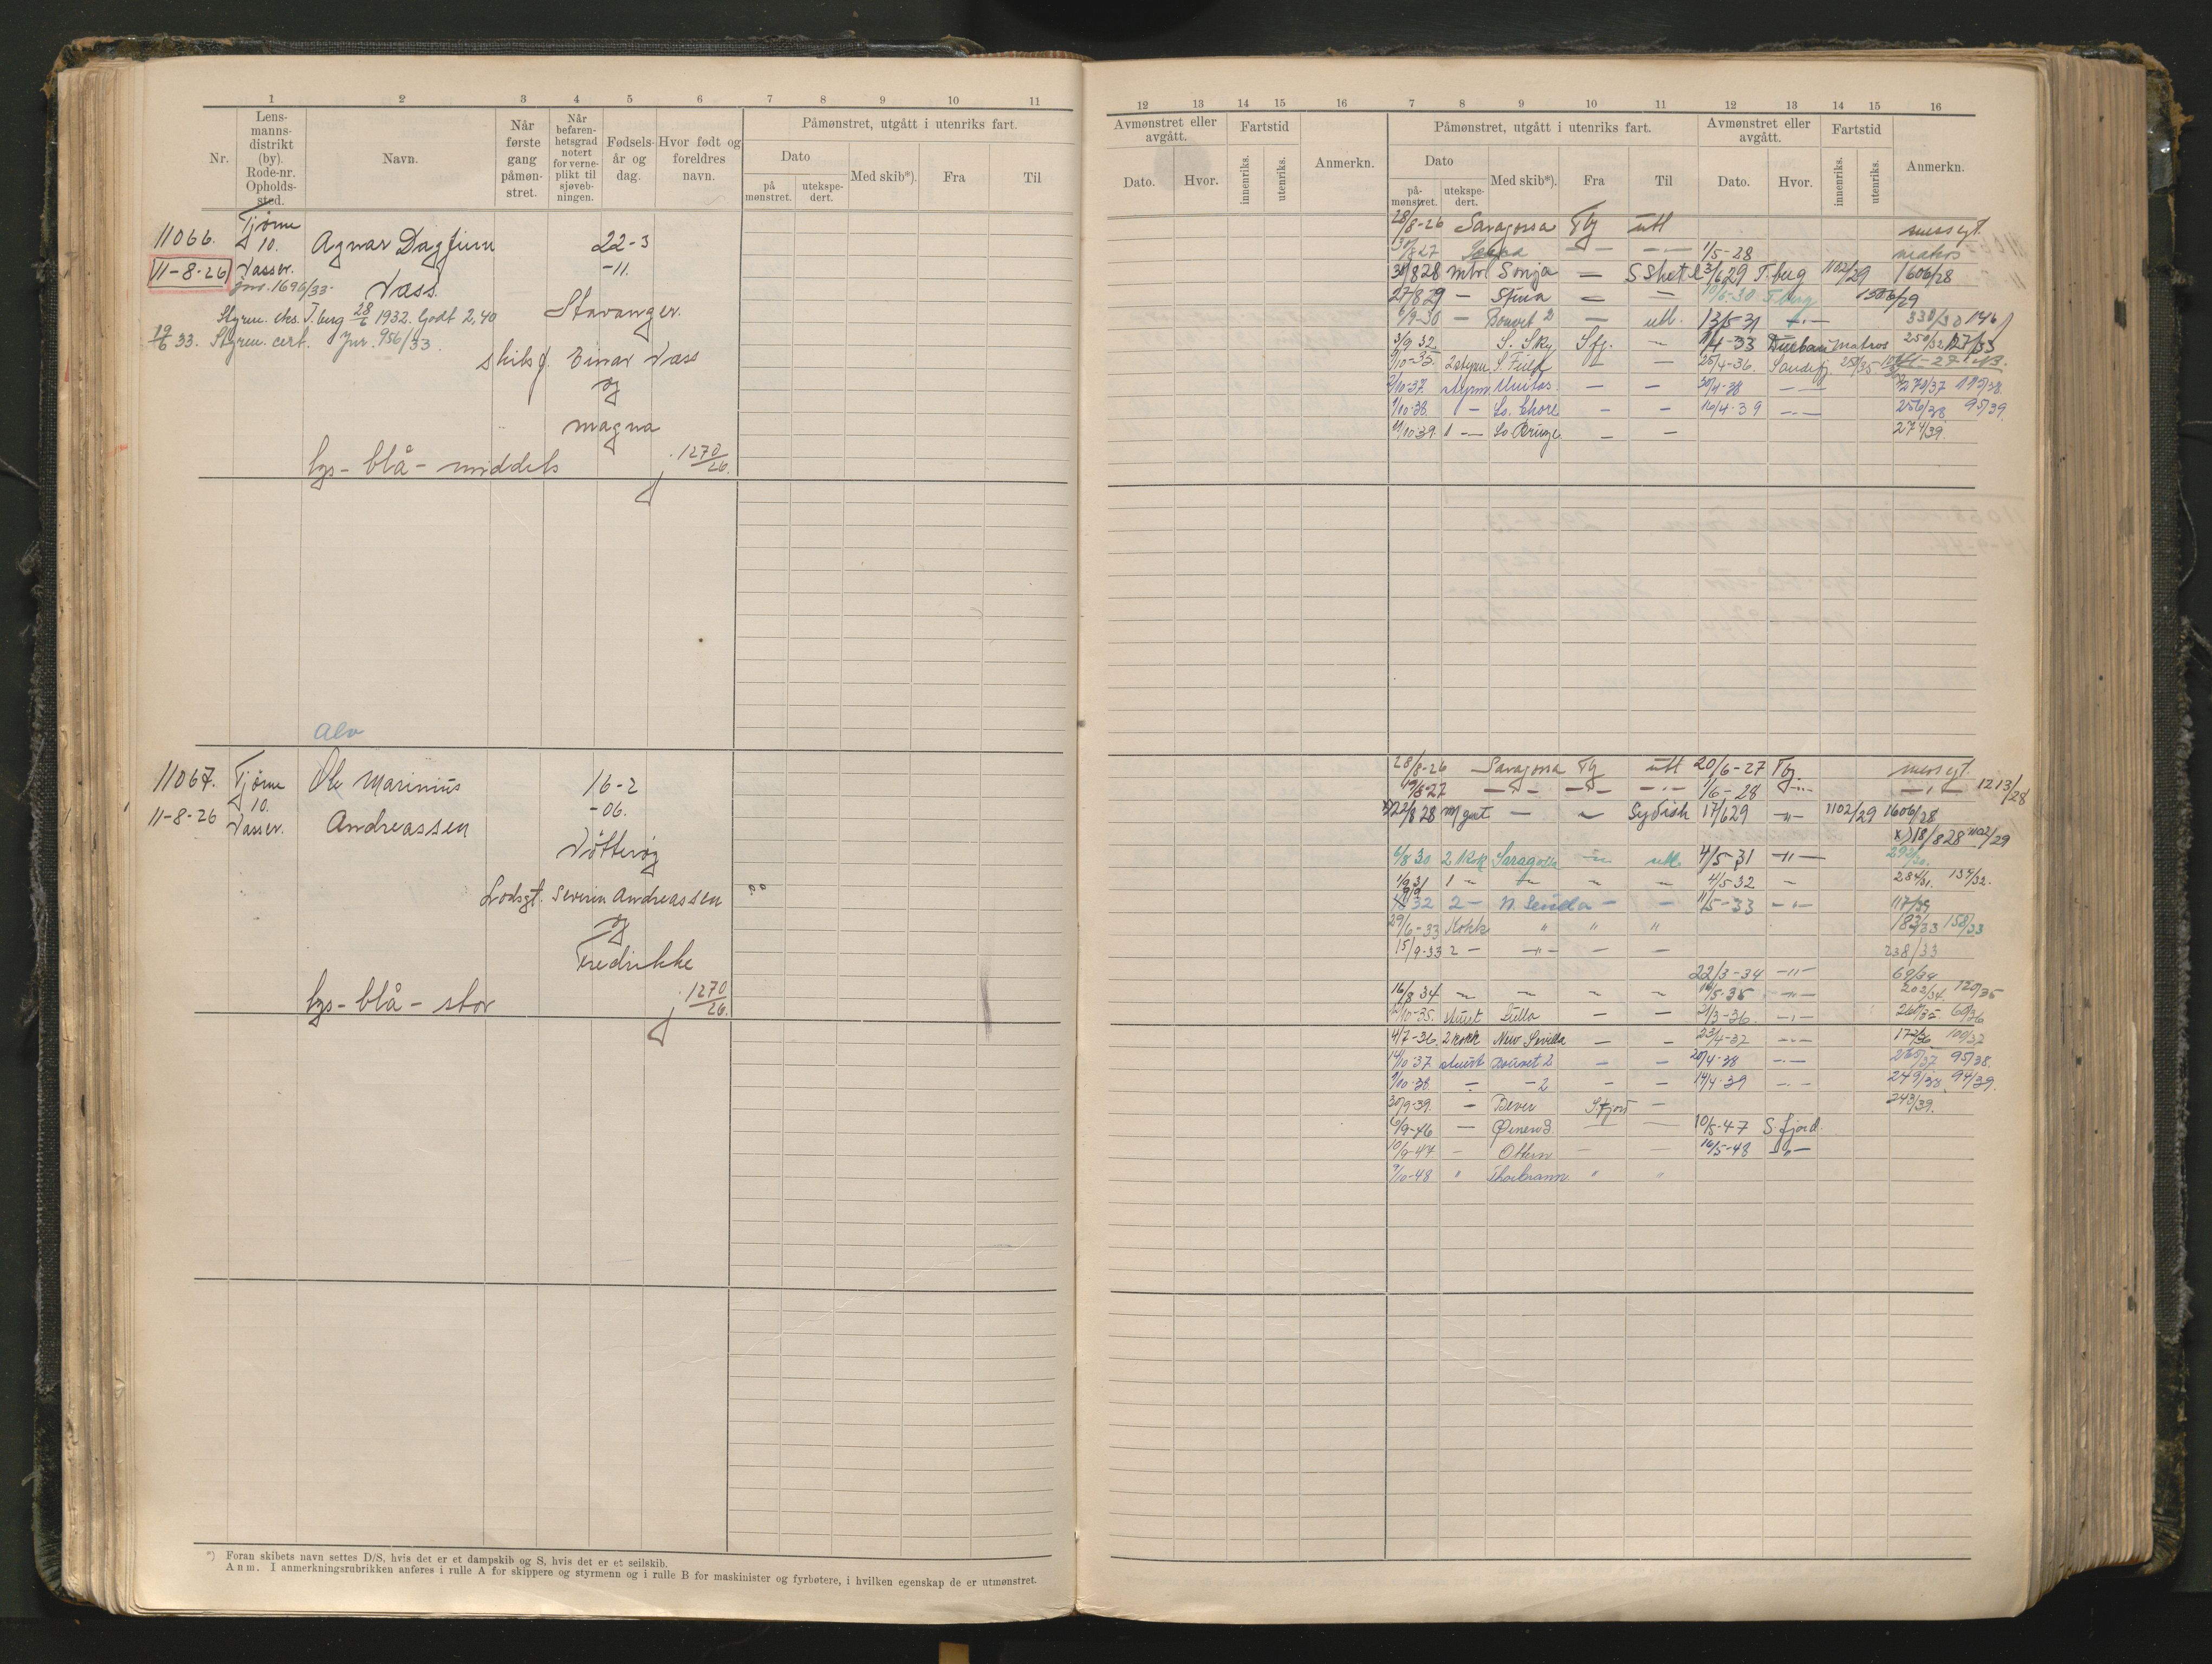 1 2 3 4 5 6 7 8 9 10 11
Nr.
Lens-
manns-
distrikt
(by).
Rode-nr.
Opholds-
sted.
Navn.
Når
første
gang
påmøn-
stret.
Når
befaren-
hetsgrad
notert
for verne-
plikt til
sjøveb-
ningen.
Fødsels-
år og
dag.
Hvor født og
foreldres
navn.
Påmønstret, utgått i utenriks fart.
Dato
på
mønstret.
utekspe-
dert.
Med skib*).
Fra
Til
11066. Tjøme
10. Agnar Dagfinn 22-3
11-8-26 Vasser. -11.
jnr. 1696/33. Vass.
Styrm. eks. T.berg 28/6 1932. Godt 2,40 Stavanger.
19/6 33. Styrm. cert. Jnr. 956/33.
skibsf. Einar Vass
og
magna
lys - blå - middels j. 1270/26.
Alv
11067. Tjøme Ole Marinius 16-2
10. -06.
11-8-26 Vasser. Andreassen
Lodsgt. Severin Andreassen
og
Fredrikke
lys - blå - stor j. 1270/26.
*) Foran skibets navn settes D/S, hvis det er et dampskib og S, hvis det er et seilskib.
Anm. I anmerkningsrubrikken anføres i rulle A for skippere og styrmenn og i rulle B for maskinister og fyrbøtere, i hvilken egenskap de er utmønstret.
12 13 14 15 16 7 8 9 10 11 12 13 14 15 16
Avmønstret eller
avgått.
Dato.
Hvor.
Fartstid
innenriks.
utenriks.
Anmerkn.
Påmønstret, utgått i utenriks fart.
Dato
på-
mønstret.
utekspe-
dert.
Med skib*).
Fra
Til
Avmønstret eller
avgått.
Dato.
Hvor.
Fartstid
innenriks.
utenriks.
Anmerkn.
28/8-26 Saragossa Tbg utl messgt.
1/5-28 matros
30/8 28 mtr. Sonja — S Shetl 3/6 29 T.berg 1102/29 1606/28
27/8 29 — — — 10/5-30 T.berg
6/9-30 — Bouvet 2 — utl. 13/5-31 —"— 330/30
3/9 32 S. Sky Sfj. — 4-33 Durban matros 250/32 127/33
9/10-35. 2 styrm — — 25/4-36. Sandefj.
2/10-37. styrm. Unitas. — — 30/4-38 —"— 272/37 115/38.
1/10-38. — So. Shore — — 16/4-39 —"— 256/38 95/39
11/10-39. 1 — So. Bruge. — — 274/39.
28/8-26 Saragossa Tbg utl 20/6-27 Tbg. messgt.
—"— —"— —"— 1/6-28 —"— —"— 1213/28
x) 22/8 28 m/gut — — Sydish 17/6 29 —"— 1102/29 1606/28
x) 18/8 28 1102/29
6/8 30 2 kok Saragossa — utl. 4/5-31 —"—
1/9 31 1 — — — — 4/5-32 — 284/31. 134/32.
32 2 — N. Sevilla — — 11/5-33 —"—
29/6-33 Kokk " " " 183/33 158/33
15/9-33 2 — —"— — — 238/33
22/3-34 —"— 69/34
16/8 34 — — — — 16/5-35 —"— 202/34. 120/35
— — 21/3-36. —"— 60/36
4/7-36. 2 kokk New Sevilla — — 23/4-37 —"— 173/36 100/37
14/10-37 stuert Bouvet 2 — — 20/4-38 —"— 265/37 95/38.
9/10-38. — — 2 — — 14/4-39 —"— 249/38 94/39.
30/9-39. — Bever S.fjord — 243/39.
6/9-46 — — — 10/5-47 S. fjord.
10/9-47 — Ottern — — 16/5-48 —"—
9/10-48 " Thorbrann " "